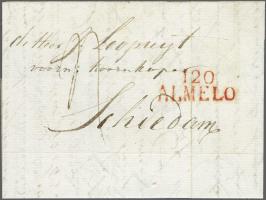 de Heer J. Loopuijt
voorn: koornkoper
120
ALMELO
Schiedam